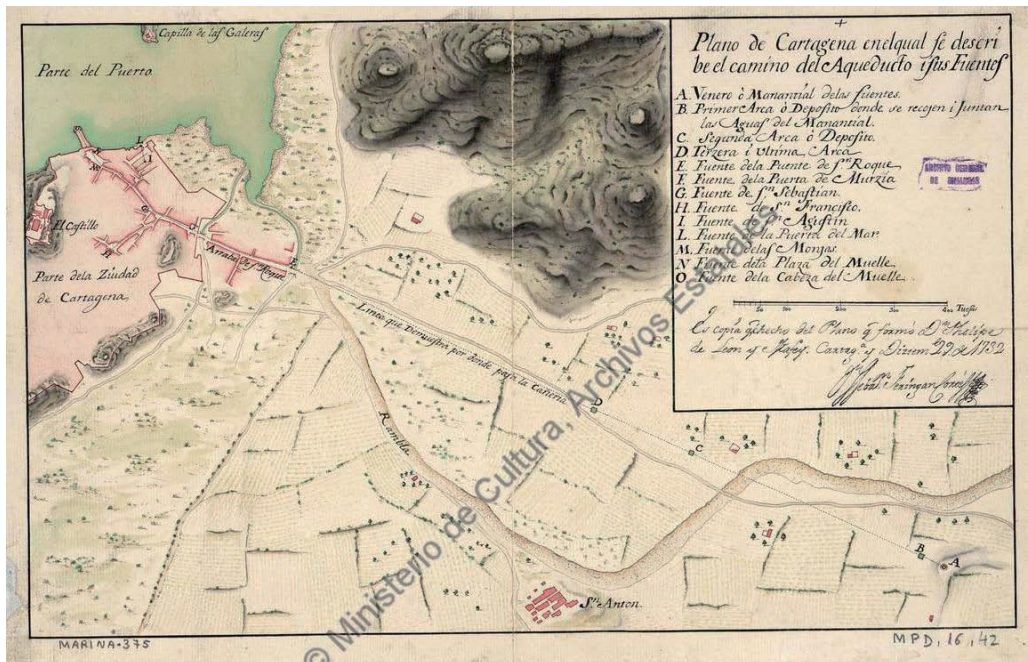 Capilla de las Galeras
Parte del Puerto
El Castillo
Parte dela Ziudad
de Cartagena
Arrabal de Sn Roque
Linea que Demuestra por donde pasa la Cañeria
Rambla
Sn Anton.
A
B
C
D
Plano de Cartagena enelqual se descri
be el camino del Aqueducto i sus Fuentes
A. Venero ò Manantial delas fuentes.
B. Primer Arca ò Deposito donde se recojen i Juntan
las Aguas del Manantial.
C. Segunda Arca ò Deposito.
D Terzera i vltima Arca
E. Fuente dela Puente de Sn Roque
F. Fuente dela Puerta de Murzia
G. Fuente de Sn Sebastian.
H. Fuente de Sn Francisco.
I. Fuente de Sn Agustin
L. Fuente de la Puerta del Mar.
M. Fuente delas Monjas.
N Fuente dela Plaza del Muelle
O Fuente dela Cabeza del Muelle
50 100 200 300 400 Tuesas
Es copia q hecho del Plano q formó Dn Phelipe
de Leon y Mafey. Cartag.a y Diziem.e 29 de 1732
Sebn Feringan Cortés
ARCHIVO GENERAL
DE SIMANCAS
© Ministerio de Cultura, Archivos Estatales
MARINA-375
MPD, 16, 42